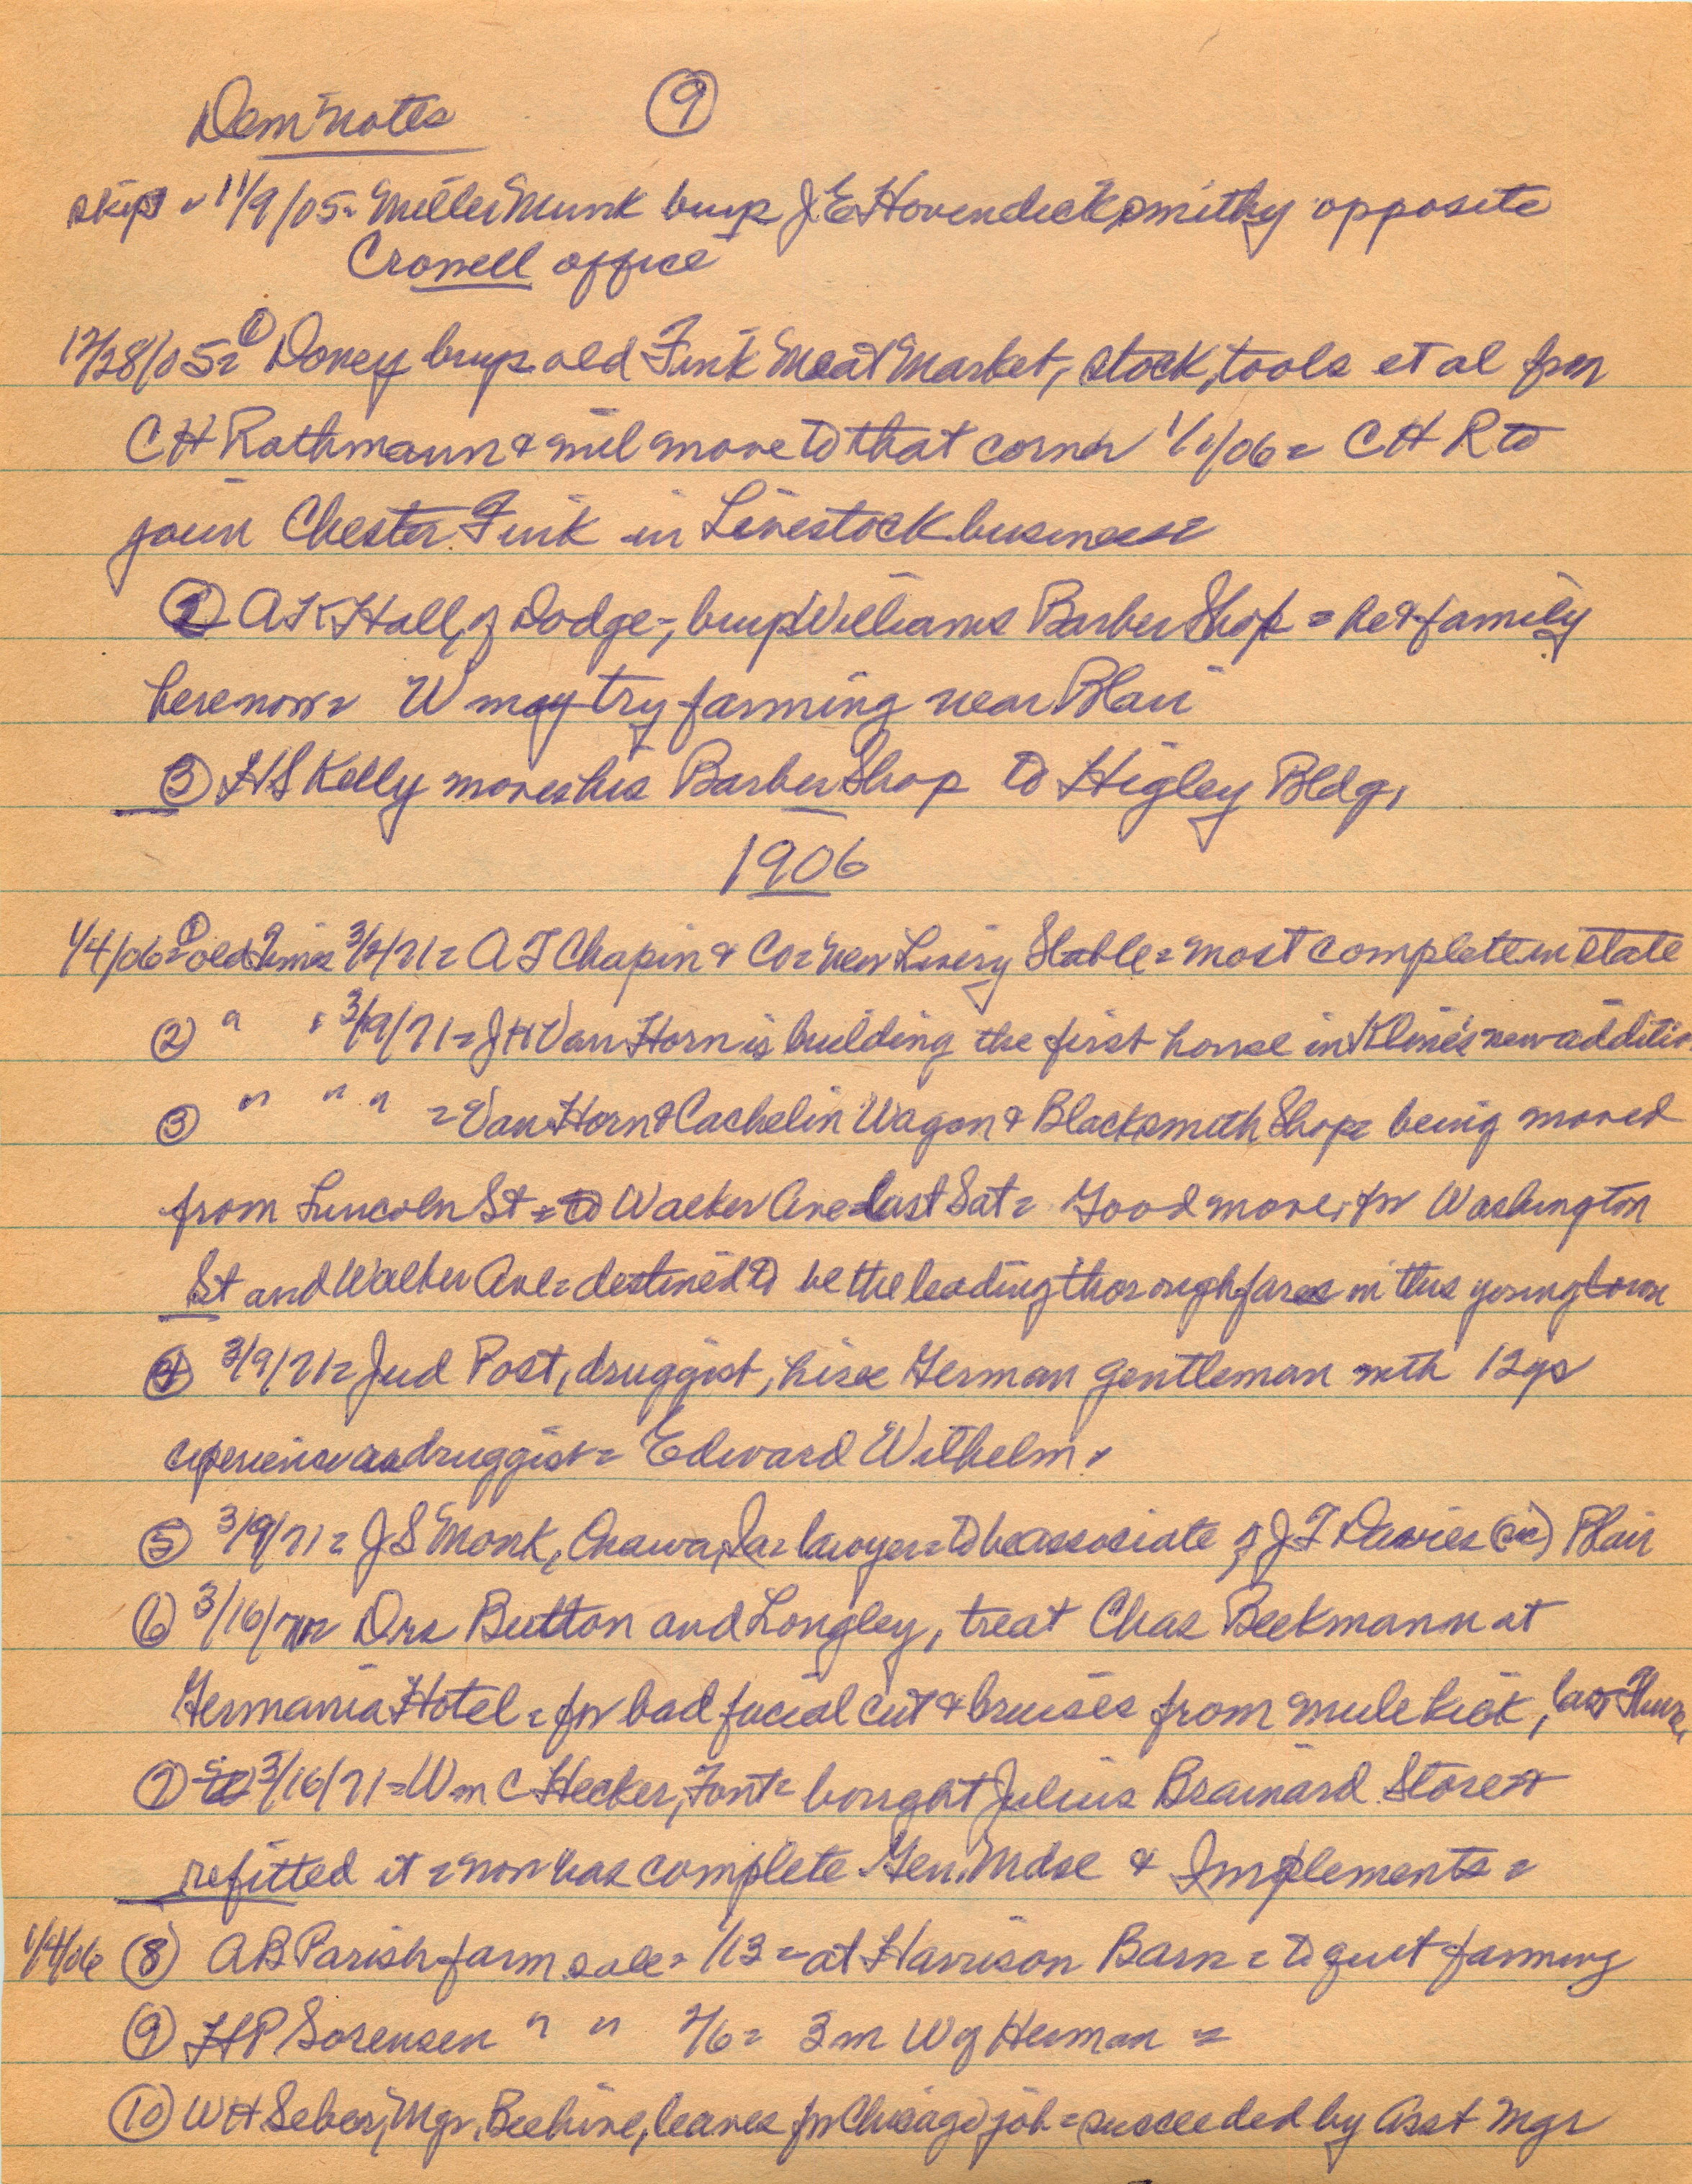 Dem notes ⑨
skip 11/9/05= Miller Munk buys J E Hovendick smithy opposite
Crowell office
12/28/05= ① Doney buys old Fink Meat Market, stock, tools et al from
C H Rathmann & will move to that corner 1/1/06= C H R to
join Chester Fink in Livestock business=
② A K Hall, of Dodge, buys Williams Barber Shop = he & family
here now= W may try farming near Blair
③ H S Kelly moves his Barber Shop to Higley Bldg.
1906
1/4/06= ① old Times 3/2/71= A J Chapin & Co= New Livery Stable= most complete in state
② " " 3/9/71= J H Van Horn is building the first house in Kline's new addition
③ " " " = Van Horn & Cachelin Wagon & Blacksmith Shop= being moved
from Lincoln St = to Walker Ave last Sat= Good move, for Washington
St and Walker Ave= destined to be the leading thoroughfares in this young town
④ 3/9/71= Jud Post, druggist, hires German gentleman with 12 ys
experience as druggist= Edward Wilhelm.
⑤ 3/9/71= J S Monk, Onawa, Ia= lawyer= to be associate of J T Davies (sic) Blair
⑥ 3/16/71= Drs Button and Longley, treat Chas Beekmann at
Germania Hotel= for bad facial cut & bruises from mule kick, last Thurs.
⑦ 3/16/71= Wm C Hecker, Font= bought Julius Brainard Store &
refitted it= now has complete Gen. Mdse & Implements=
1/4/06 ⑧ A B Parish farm sale= 1/13= at Harrison Barn= to quit farming
⑨ H P Sorensen " " 2/6= 3 m W of Herman =
⑩ W H Seber, Mgr. Beehive, leaves for Chicago job= succeeded by Asst Mgr